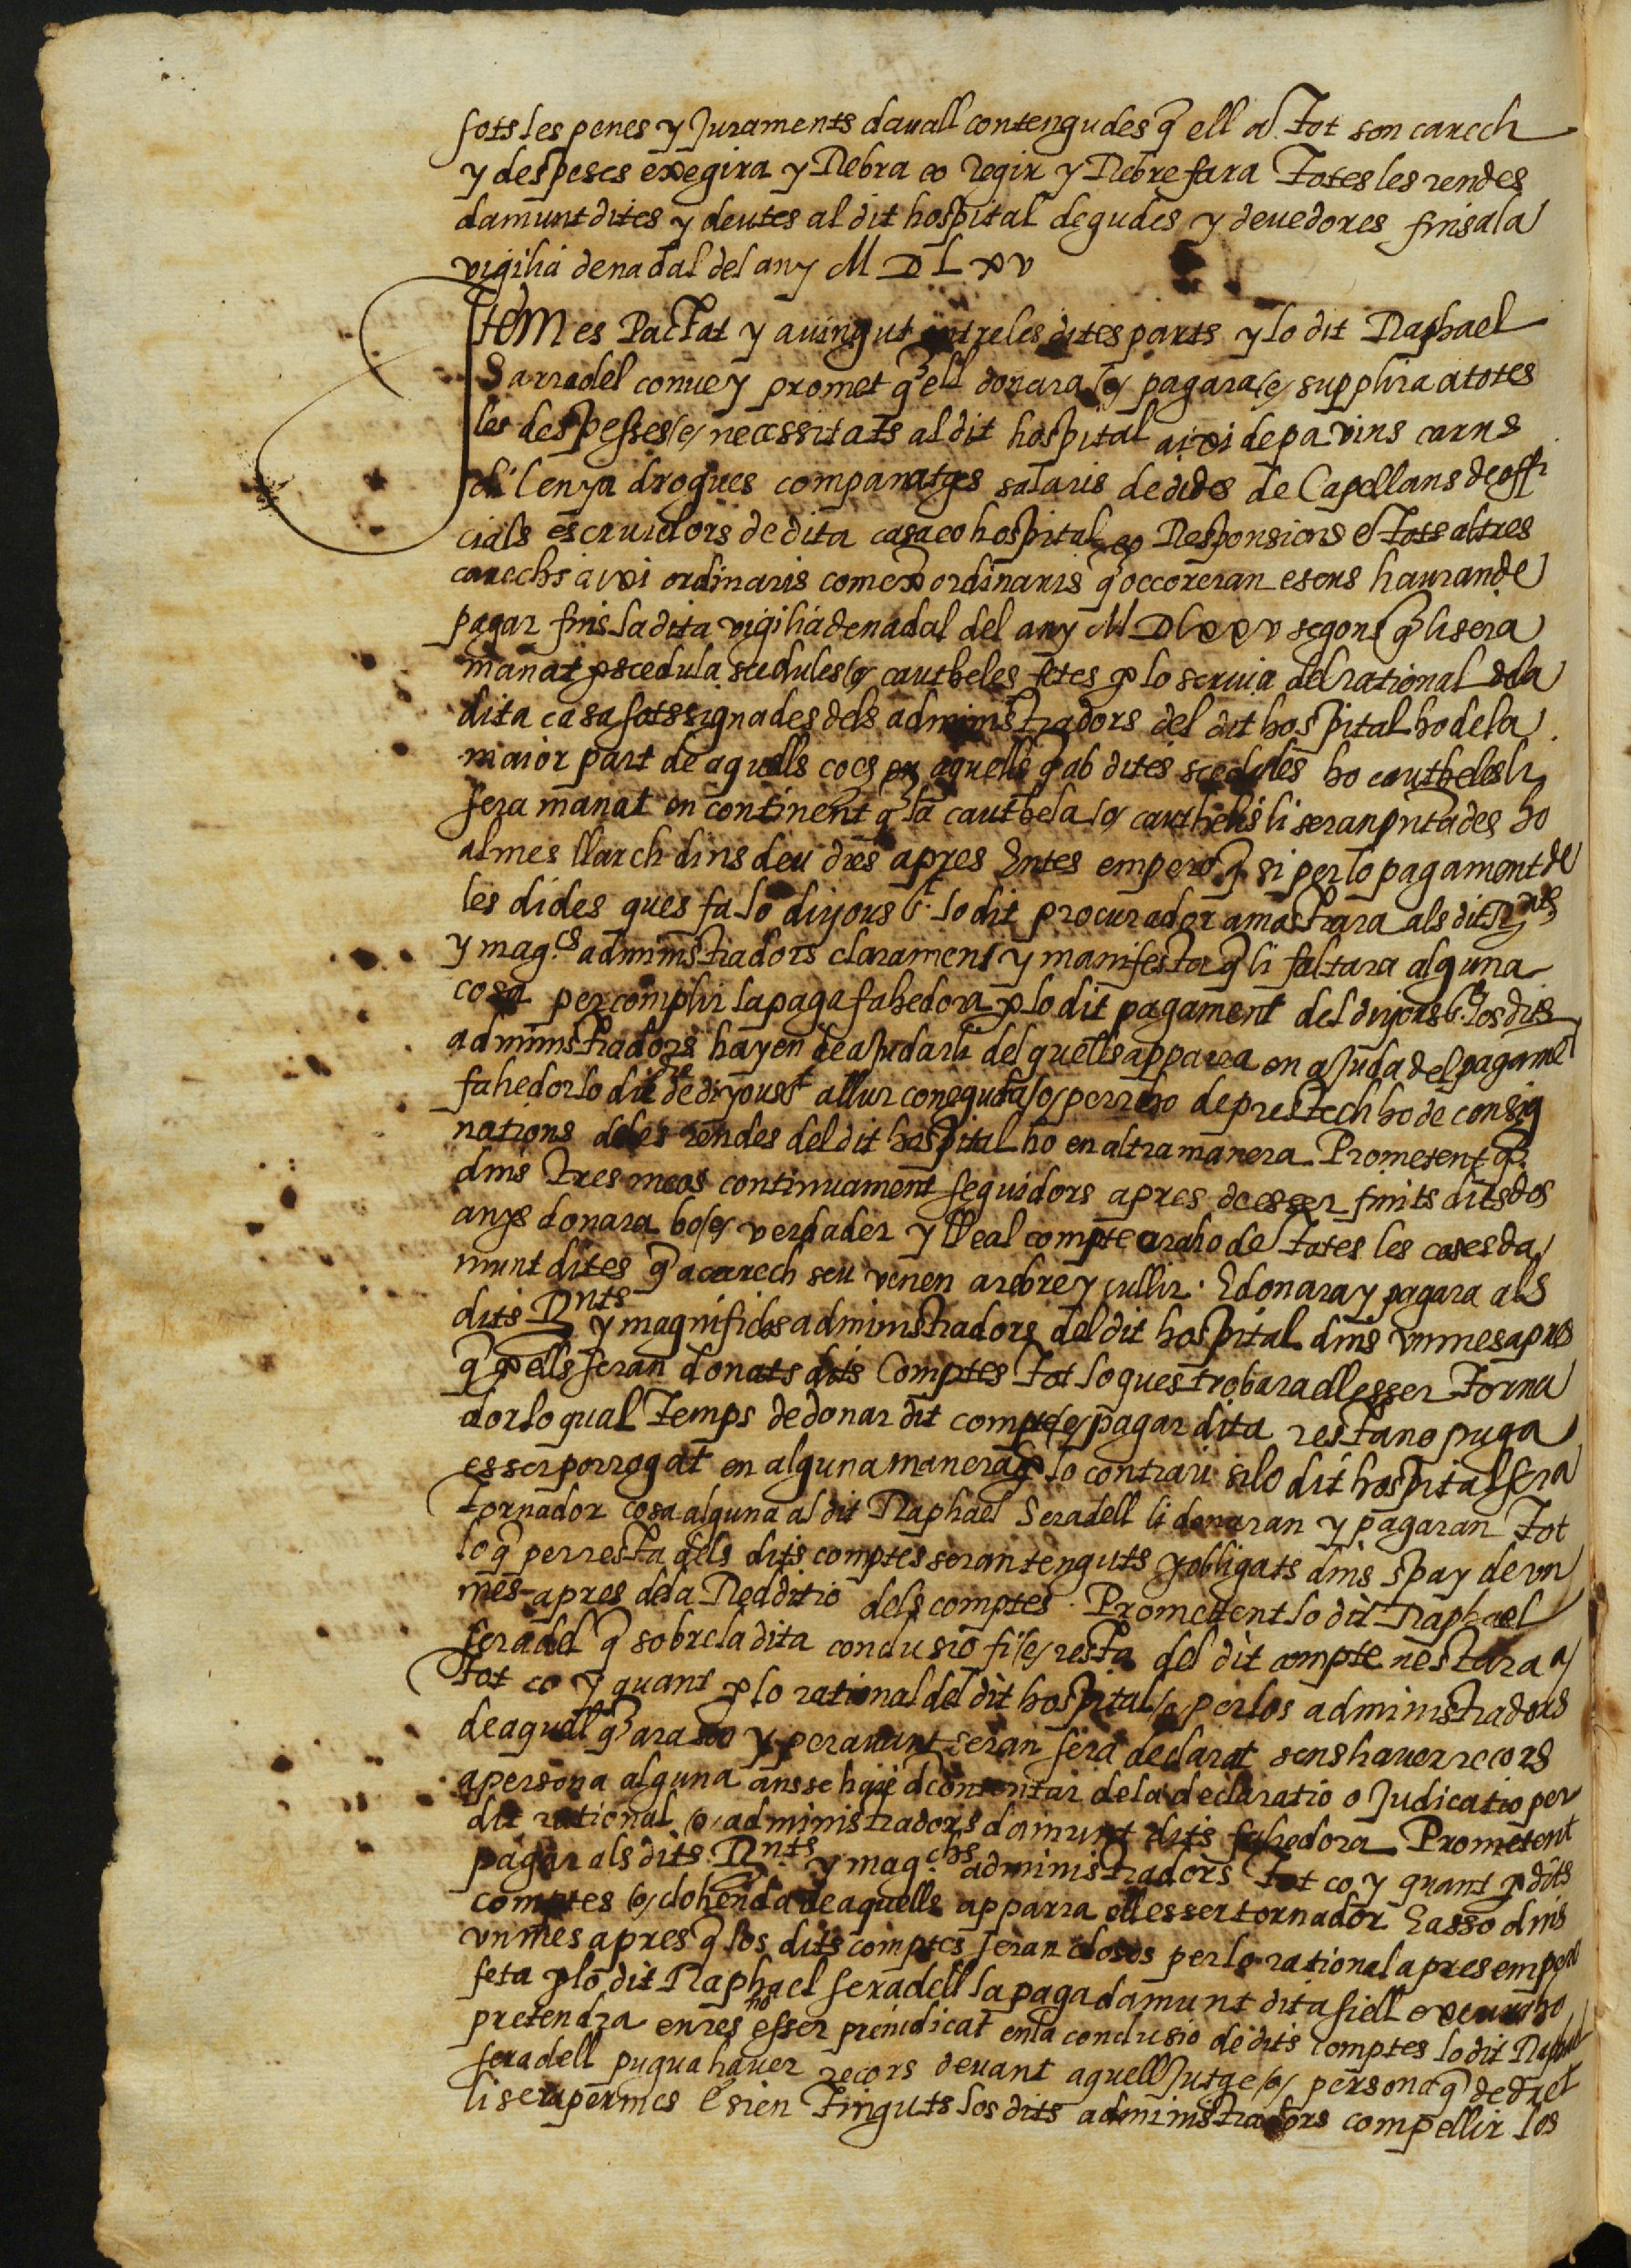 sots les penes y Juraments dauall contengudes q̃ ell a tot son carech
y despeses exegira y Rebra eo regir y Rebre fara Totes les rendes
damunt dites y deutes al dit hospital degudes y deuedores fins a la
vigilia de nadal del any M D L xv
Item es Pactat y auingut entre les dites parts y lo dit Raphael
Sarradel conue y promet q̃ ell donara /e/ pagara /e/ supplira a totes
les despesses /e/ necessitats al dit hospital aixi de pa vins carns
oli lenya drogues companatges salaris de dides de Capellans de offi
cials escruidors de dita casa eo hospital eo Responsions e Tots altres
carechs aixi ordinaris com exordinaris q̃ occoreran e sens hauran de
pagar fins la dita vigilia de nadal del any M D lxxv segons q̃ li sera
manat p scedula scedules /o/ cautheles fetes p lo scriua del rational de la
dita casa sotssignades dels administradors del dit hospital ho de la
maior part de aquells ço es aquells q̃ ab dites scedules ho cautheles li
sera manat en continent q̃ la cauthela /o/ cautheles li seran pntades ho
al mes llarch dins deu dies apres Entes empero q̃ si per lo pagament de
les dides ques fa lo dijous S.t lo dit procurador amostrara als dits R.nts
y mag.chs administradors clarament y manifesta q̃ li faltara alguna
cosa per complir la paga fahedora p lo dit pagament del dijous S.t los dits
administradors hayen de aJudarli del quells apparra en aJuda del pagamet
fahedor lo dit die de dijous S.t a llur coneguda /o/ per via de prestech ho de consig
nations de les rendes del dit hospital ho en altra manera. Prometent q̃
dins tres mesos continuament seguidors apres de esser finits dits dos
anys donara bo /e/ verdader y lleal compte e raho de Totes les coses da
munt dites q̃ a carech seu venen a rebre y cullir. E donara y pagara als
dits R.nts y magnifichs administradors del dit hospital dins vn mes apres
q̃ p ells seran donats dits Comptes tot lo ques trobara ell esser torna
dor lo qual Temps de donar dit compte /e/ pagar dita resta no puga
esser porrogat en alguna manera e p lo contrari si lo dit hospital sera
tornador cosa alguna al dit Raphael Seradell li donaran y pagaran Tot
lo q̃ per resta dels dits comptes seran tenguts y obligats dins spay de vn
mes apres de la Redditio dels comptes. Promettent lo dit Raphael
seradel q̃ sobre la dita conclusio fi /e/ resta del dit compte nestara a
tot ço y quant p lo rational del dit hospital /o/ per los administradors
de aquell q̃ ara son y per auant seran sera declarat sens hauer recors
a persona alguna ans se haie d contentar de la declaratio o Judicatio per
dit rational /o/ administradors damunt dits fahedora Prometent
pagar als dits R.nts y mag.chs administradors tot ço y quant p dits
comptes /o/ clohenda de aquells apparra ell esser tornador E asso dins
vn mes apres q̃ los dits comptes seran closos per lo rational apres empero
feta p lo dit Raphael seradell la paga damunt dita si ell
pretendra en res no esser preiudicat en la conclusio de dits comptes lo dit Raphael
seradell pugua hauer recors deuant aquell Jutge /o/ persona q̃ de dret
li sera permes E sien tinguts los dits administradors compellir los